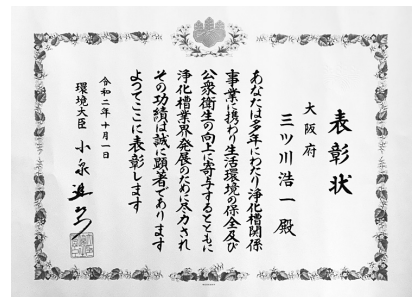 表彰状
大阪府
三ツ川浩一殿
あなたは多年にわたり浄化槽関係
事業に携わり生活環境の保全及び
公衆衛生の向上に寄与するとともに
浄化槽業界発展のために尽力され
その功績は誠に顕著であります
よってここに表彰します
令和二年十月一日
環境大臣 小泉進次郎